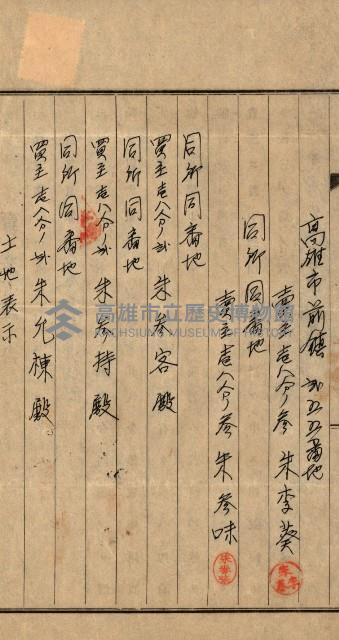 高雄市前鎮弍五五番地
賣主壱八分ノ参 朱李葵
同所同番地
賣主壱八分ノ参 朱参味
同所同番地
買主壱八分ノ弍 朱参客殿
同所同番地
買主壱八分ノ弍 朱参持殿
同所同番地
買主壱八分ノ弍 朱允棟殿
土地表示
高雄市立歷史博物館
KAOHSIUNG MUSEUM OF HISTORY